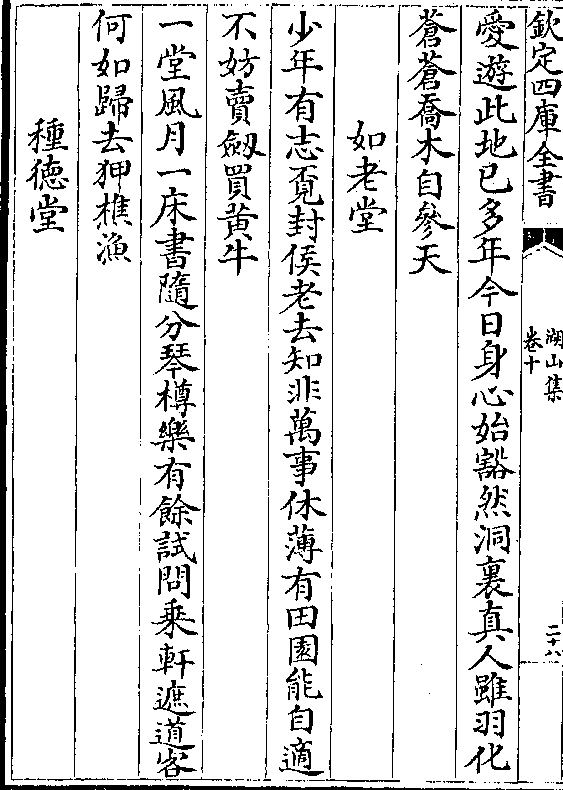 欽定四庫全書
湖山集
卷十
二十八
愛遊此地已多年今日身心始豁然洞裏真人雖羽化
蒼蒼喬木自參天
如老堂
少年有志覓封侯老去知非萬事休薄有田園能自適
不妨賣劔買黄牛
一堂風月一床書隨分琴樽樂有餘試問乘軒遮道客
何如歸去狎樵漁
種徳堂